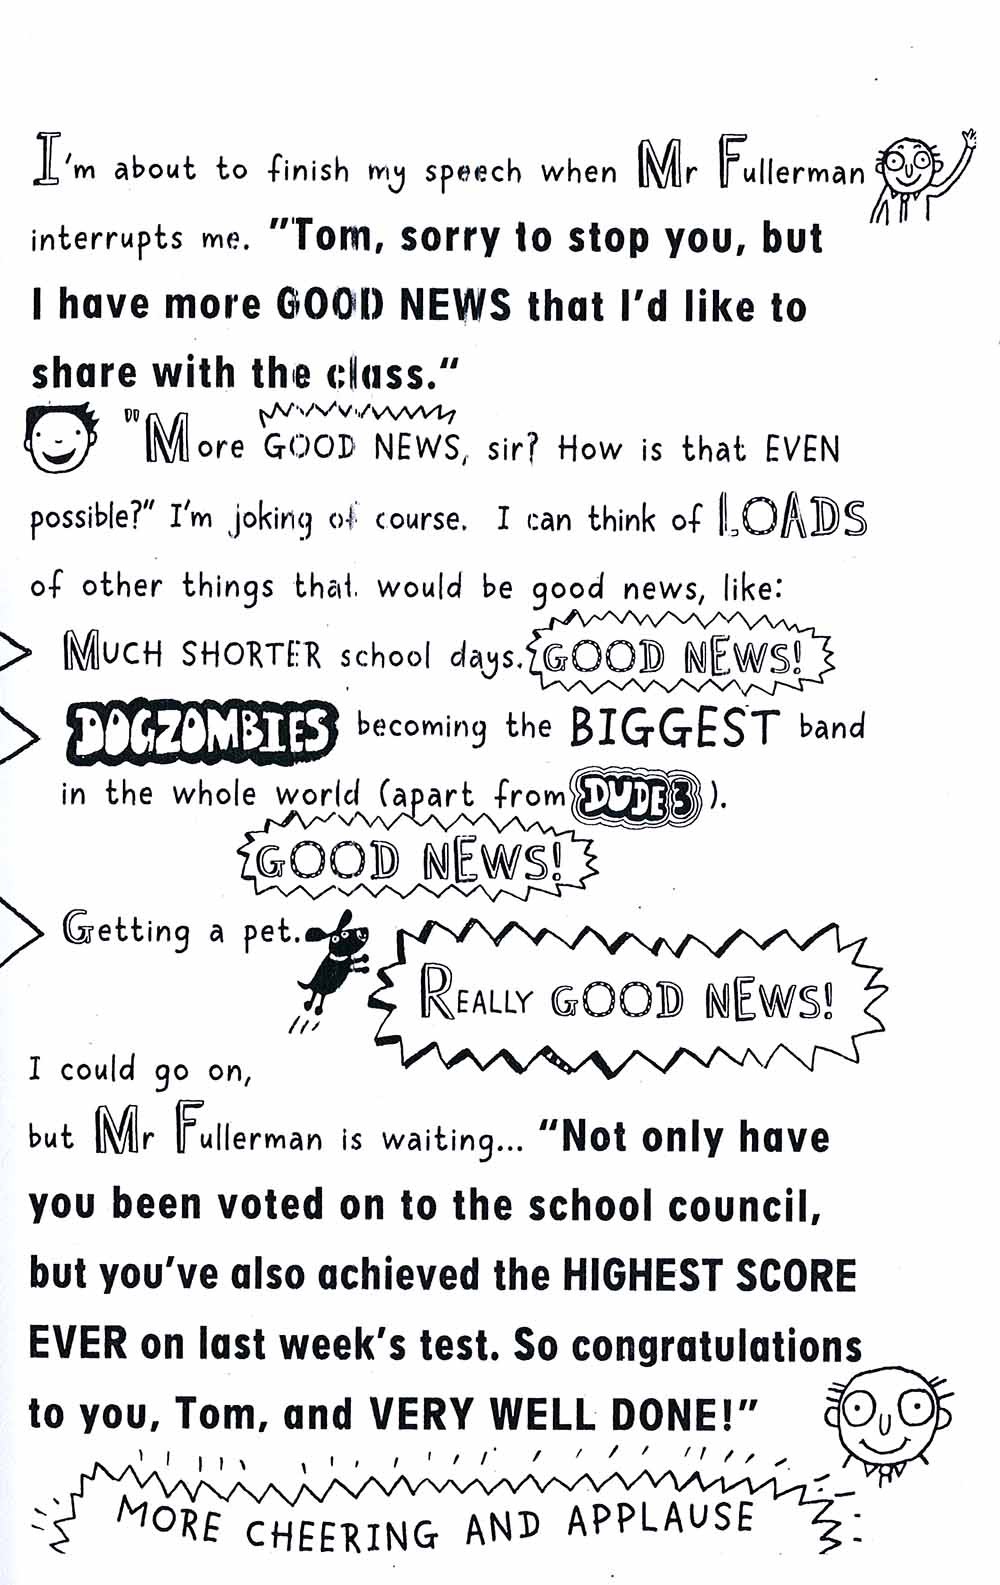 I'm about to finish my speech when Mr Fullerman
interrupts me. "Tom, sorry to stop you, but
I have more GOOD NEWS that I'd like to
share with the class."
"More GOOD NEWS, sir? How is that EVEN
possible?" I'm joking of course. I can think of LOADS
of other things that would be good news, like:
MUCH SHORTER school days. GOOD NEWS!
DOGZOMBIES becoming the BIGGEST band
in the whole world (apart from DUDE3).
GOOD NEWS!
Getting a pet.
REALLY GOOD NEWS!
I could go on,
but Mr Fullerman is waiting... "Not only have
you been voted on to the school council,
but you've also achieved the HIGHEST SCORE
EVER on last week's test. So congratulations
to you, Tom, and VERY WELL DONE!"
MORE CHEERING AND APPLAUSE